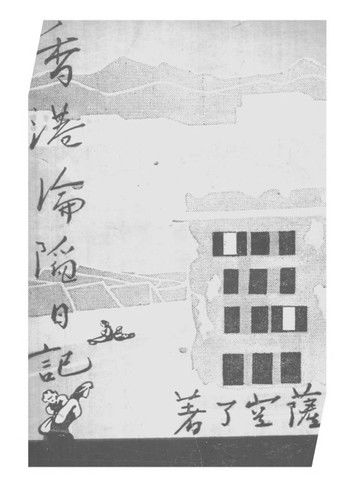 香港淪陷日記
薩空了著